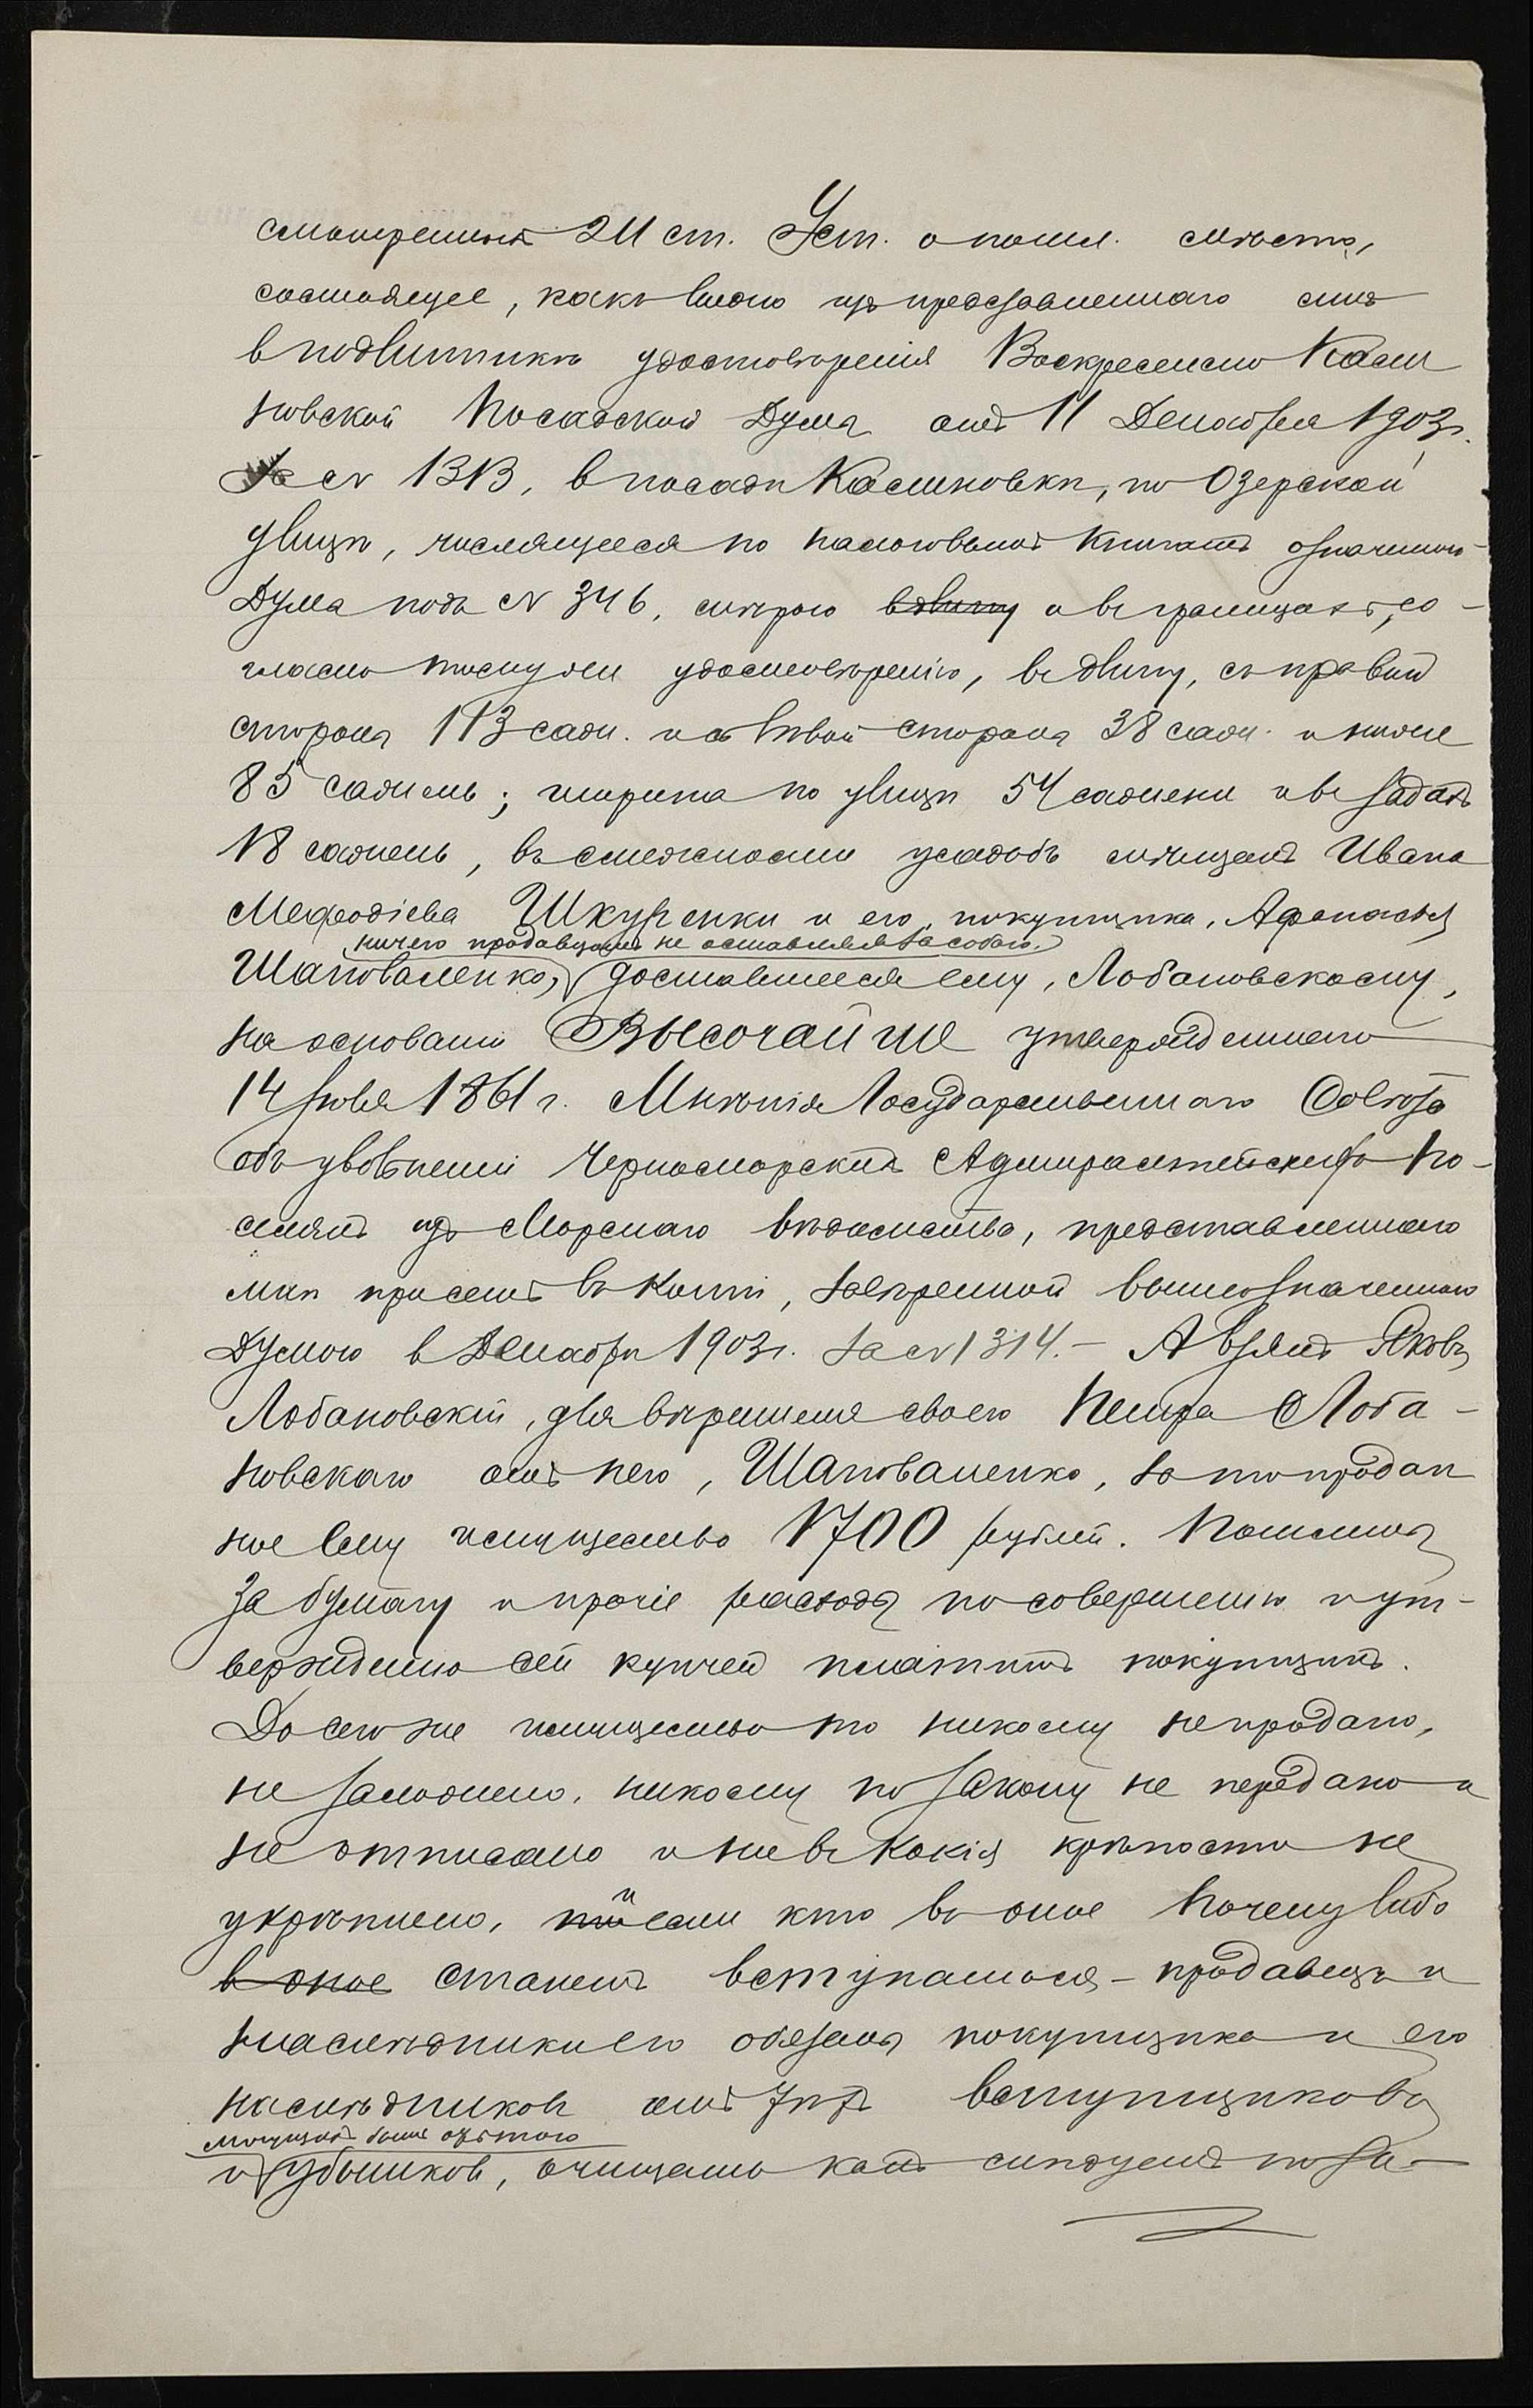 смотренныя 211 ст. Уст. о пошл. мѣсто,
состоящее, какъ видно изъ представленнаго мнѣ
въ подлинникѣ удостовѣренія Воскресенско Кали
новской Посадской Думы отъ 11 Декабря 1903 г.
За № 1313, въ посадѣ Калиновкѣ, по Озерской
улицѣ, числящееся по налоговымъ книгамъ означенной
Думы подъ № 346, мѣрою в длину и въ границахъ, со-
гласно тому же удостовѣренію, въ длину, съ правой
стороны 113 саж. и съ лѣвой стороны 38 саж. и ниже
85 сажень; ширина по улицѣ 54 сажени и въ задахъ
18 сажень, въ смежности усадьбъ мѣщанъ Ивана
Мефодіева Шкуренки и его, покупщика, Афанасія
ничего продавцомъ не оставляя за собою.
Шаповаленко, доставшееся ему, Лобановскому,
на основаніи Высочайше утвержденнаго
14 Ноября 1861 г. Мнѣнія Государственнаго Совѣта
объ увольненіи Черноморскихъ Адмиралтейскихъ По-
селянъ изъ Морскаго вѣдомства, представленнаго
мнѣ при семъ въ копіи, завѣренной вышеозначенною
Думою въ Декабрѣ 1903 г. за № 1314. – А взялъ Яковъ
Лобановскій, для вѣрителя своего Петра Лоба-
новскаго отъ него, Шаповаленко, за то продан
ное ему имущество 1700 рублей. Пошлины
за бумагу и прочіе расходы по совершенію и ут-
вержденію сей купчей платитъ покупщикъ.
До сего же имущество то никому не продано,
не заложено, никому по закону не передано и
не отписано и ни въ какія крѣпости не
укрѣплено, и если кто во оное почему либо
в оное станетъ вступаться – продавецъ и
наслѣдники его обязаны покупщика и его
наслѣдниковъ отъ тѣхъ вступщиковъ
могущихъ быть отъ того
и убытковъ, очищать какъ слѣдуетъ по за-